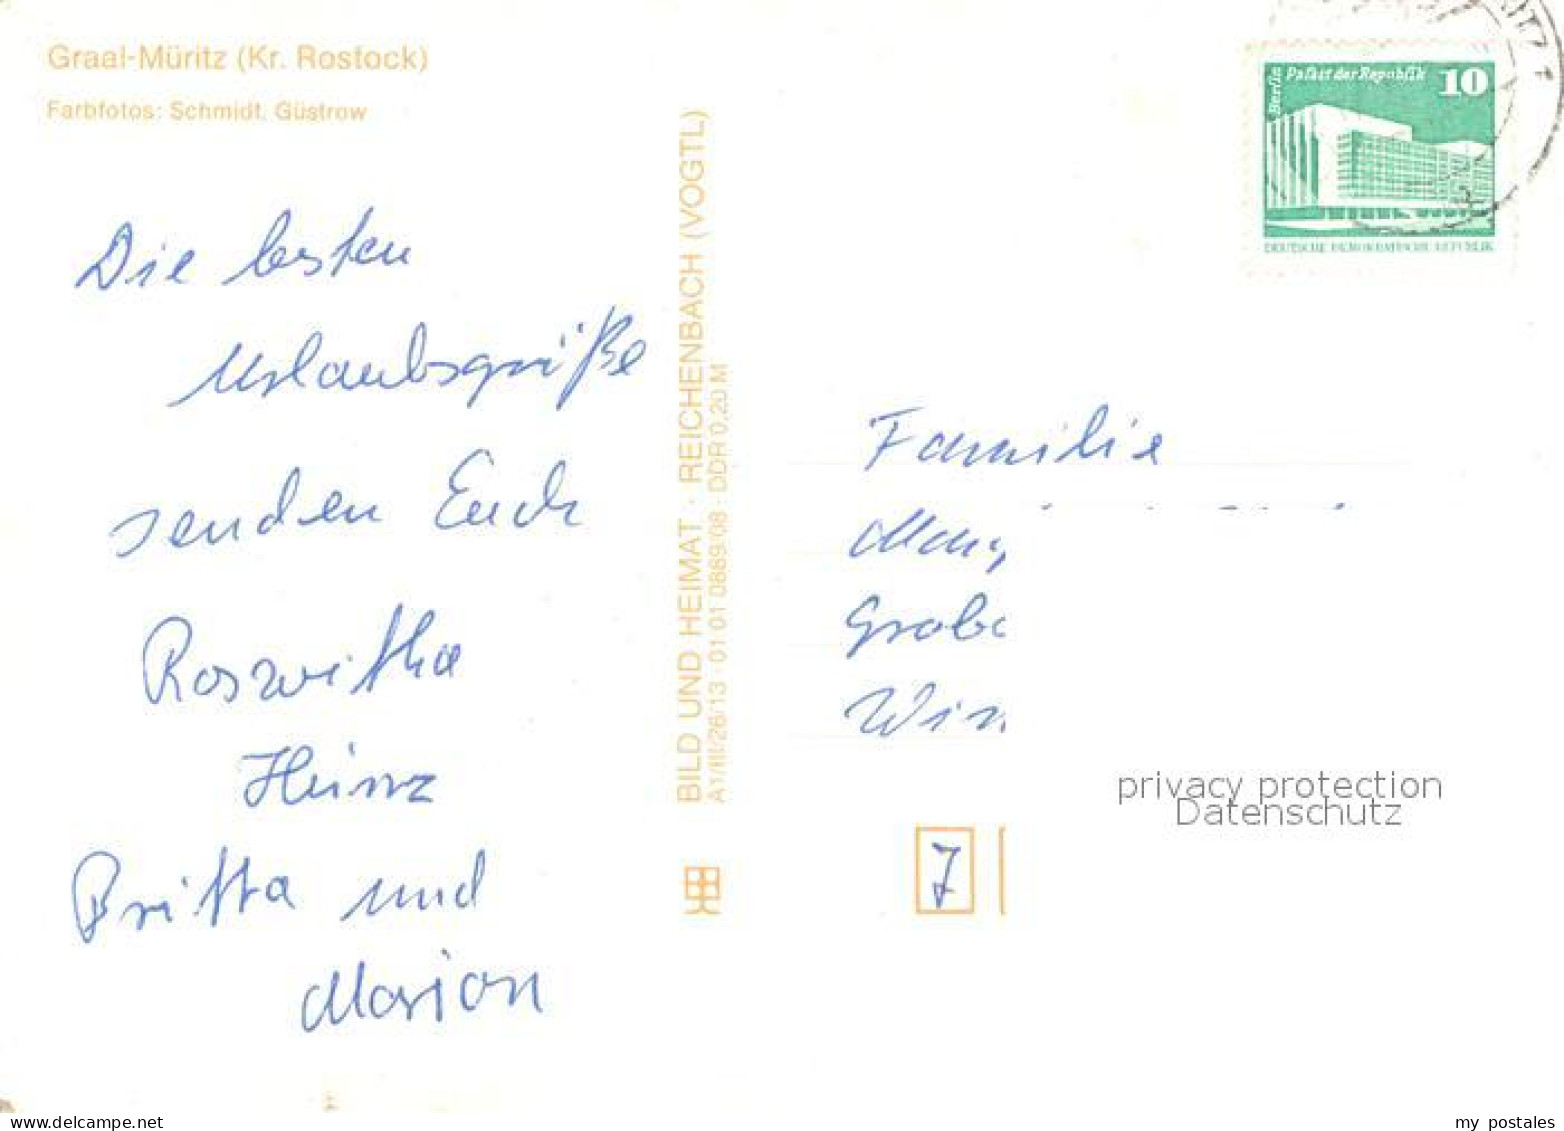 Graal-Müritz (Kr. Rostock)
Farbfotos: Schmidt, Güstrow
Die besten
Urlaubsgrüße
senden Euch
Roswitha
Heinz
Britta und
Marion
BILD UND HEIMAT · REICHENBACH (VOGTL)
A1/III/26/13 · 01 01 0889/08 · DDR 0,20 M
Berlin
Palast der Republik
10
DEUTSCHE DEMOKRATISCHE REPUBLIK
Familie
7
privacy protection
Datenschutz
www.delcampe.net
my_postales